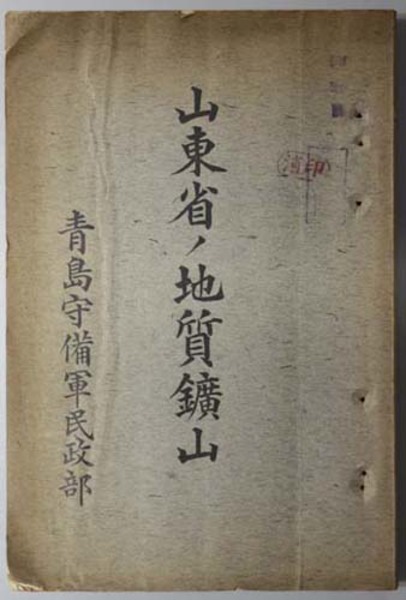 山東省ノ地質鑛山
青島守備軍民政部